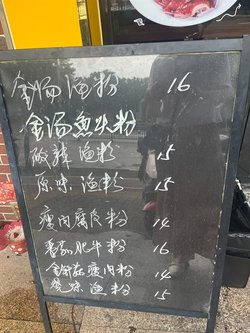 金汤渔粉 16
金汤魚火粉
酸辣渔粉 15
原味渔粉 15
瘦肉腐皮粉 14
番茄肥牛粉 16
金针菇瘦肉粉 14
渔粉 15